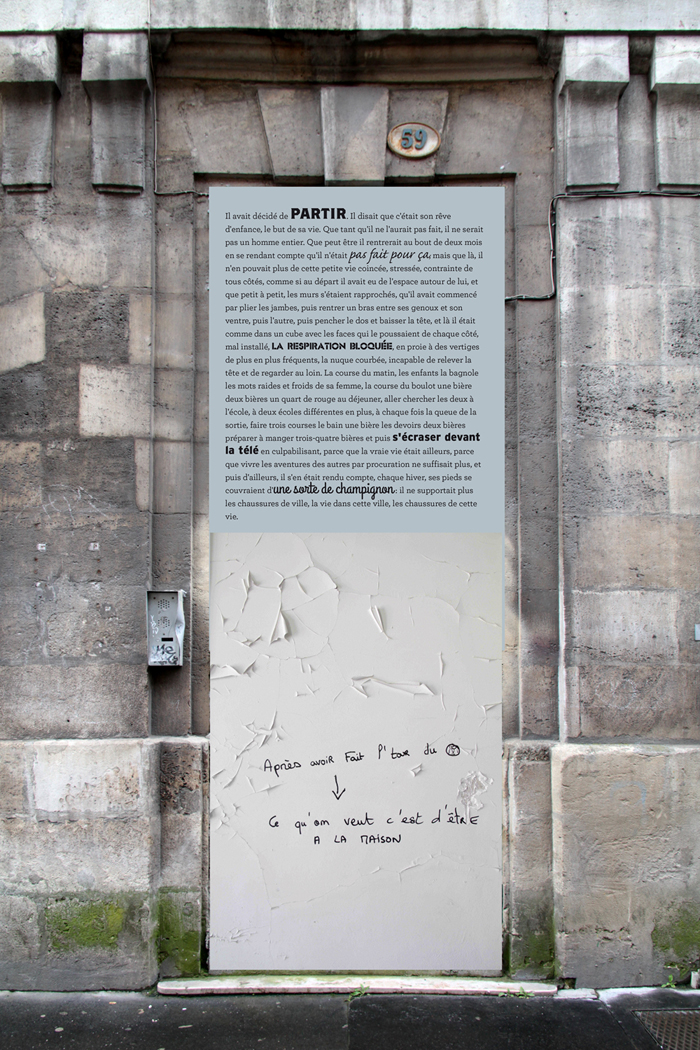 59
Il avait décidé de PARTIR. Il disait que c'était son rêve
d'enfance, le but de sa vie. Que tant qu'il ne l'aurait pas fait, il ne serait
pas un homme entier. Que peut être il rentrerait au bout de deux mois
en se rendant compte qu'il n'était pas fait pour ça, mais que là, il
n'en pouvait plus de cette petite vie coincée, stressée, contrainte de
tous côtés, comme si au départ il avait eu de l'espace autour de lui, et
que petit à petit, les murs s'étaient rapprochés, qu'il avait commencé
par plier les jambes, puis rentrer un bras entre ses genoux et son
ventre, puis l'autre, puis pencher le dos et baisser la tête, et là il était
comme dans un cube avec les faces qui le poussaient de chaque côté,
mal installé, LA RESPIRATION BLOQUÉE, en proie à des vertiges
de plus en plus fréquents, la nuque courbée, incapable de relever la
tête et de regarder au loin. La course du matin, les enfants la bagnole
les mots raides et froids de sa femme, la course du boulot une bière
deux bières un quart de rouge au déjeuner, aller chercher les deux à
l'école, à deux écoles différentes en plus, à chaque fois la queue de la
sortie, faire trois courses le bain une bière les devoirs deux bières
préparer à manger trois-quatre bières et puis s'écraser devant
la télé en culpabilisant, parce que la vraie vie était ailleurs, parce
que vivre les aventures des autres par procuration ne suffisait plus, et
puis d'ailleurs, il s'en était rendu compte, chaque hiver, ses pieds se
couvraient d'une sorte de champignon : il ne supportait plus
les chaussures de ville, la vie dans cette ville, les chaussures de cette
vie.
Après avoir Fait l' tour du
Ce qu'on veut c'est d'êtRE
A LA MAISON